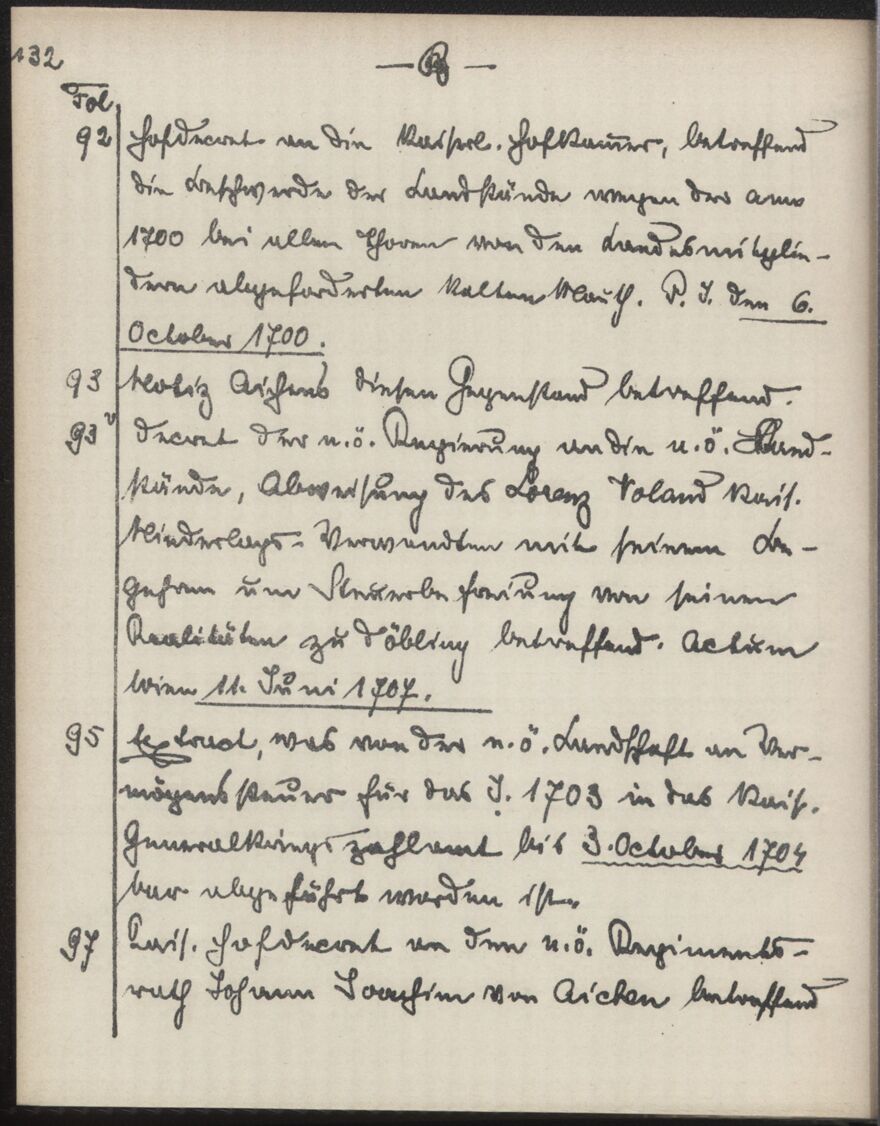 132
— B —
Fol
92 Hofdecret an die Kaiserl. Hofkam̅er, betreffend
die Beschwerde der Landstände wegen der anno
1700 bei allen Thoren von den Landesmitglie-
dern abgeforderten Kalten Mauth. P. J. den 6.
October 1700.
93 Notiz Aichens diesen Gegenstand betreffend.
93v Decret der n.ö. Regierung an die n.ö. Land-
stände, Abweisung des Lorenz Voland Kais.
Niederlags-Verwandten mit seinem Be-
gehren um Steuerbefreiung von seinen
Realitäten zu Döbling betreffend. Actum
Wien 11. Juni 1707.
95 Extract, was von der n.ö. Landschaft an Ver-
mögenssteuer für das J. 1703 in das Kais.
Generalkriegszahlamt bis 3. October 1704
bar abgeführt worden ist.
97 Kais. Hofdecret an den n.ö. Regiments-
rath Johann Joachim von Aichen betreffend